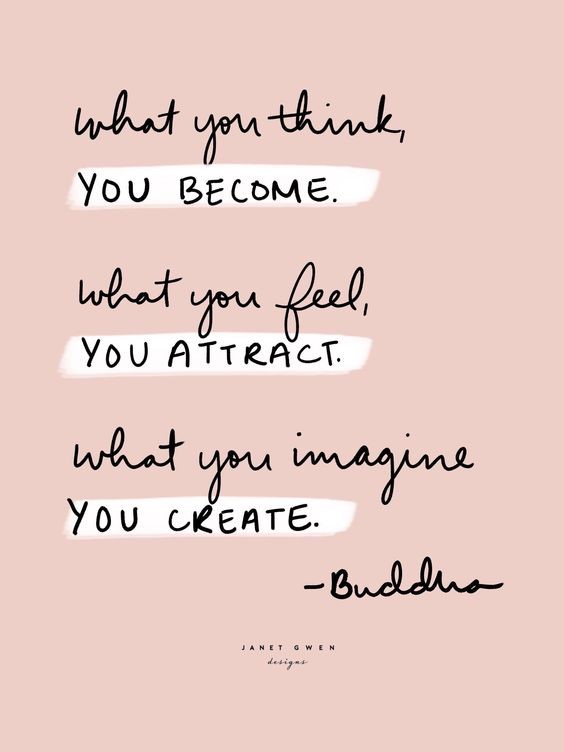 what you think,
YOU BECOME.
what you feel,
YOU ATTRACT.
what you imagine
YOU CREATE.
-Buddha
JANET GWEN
designs